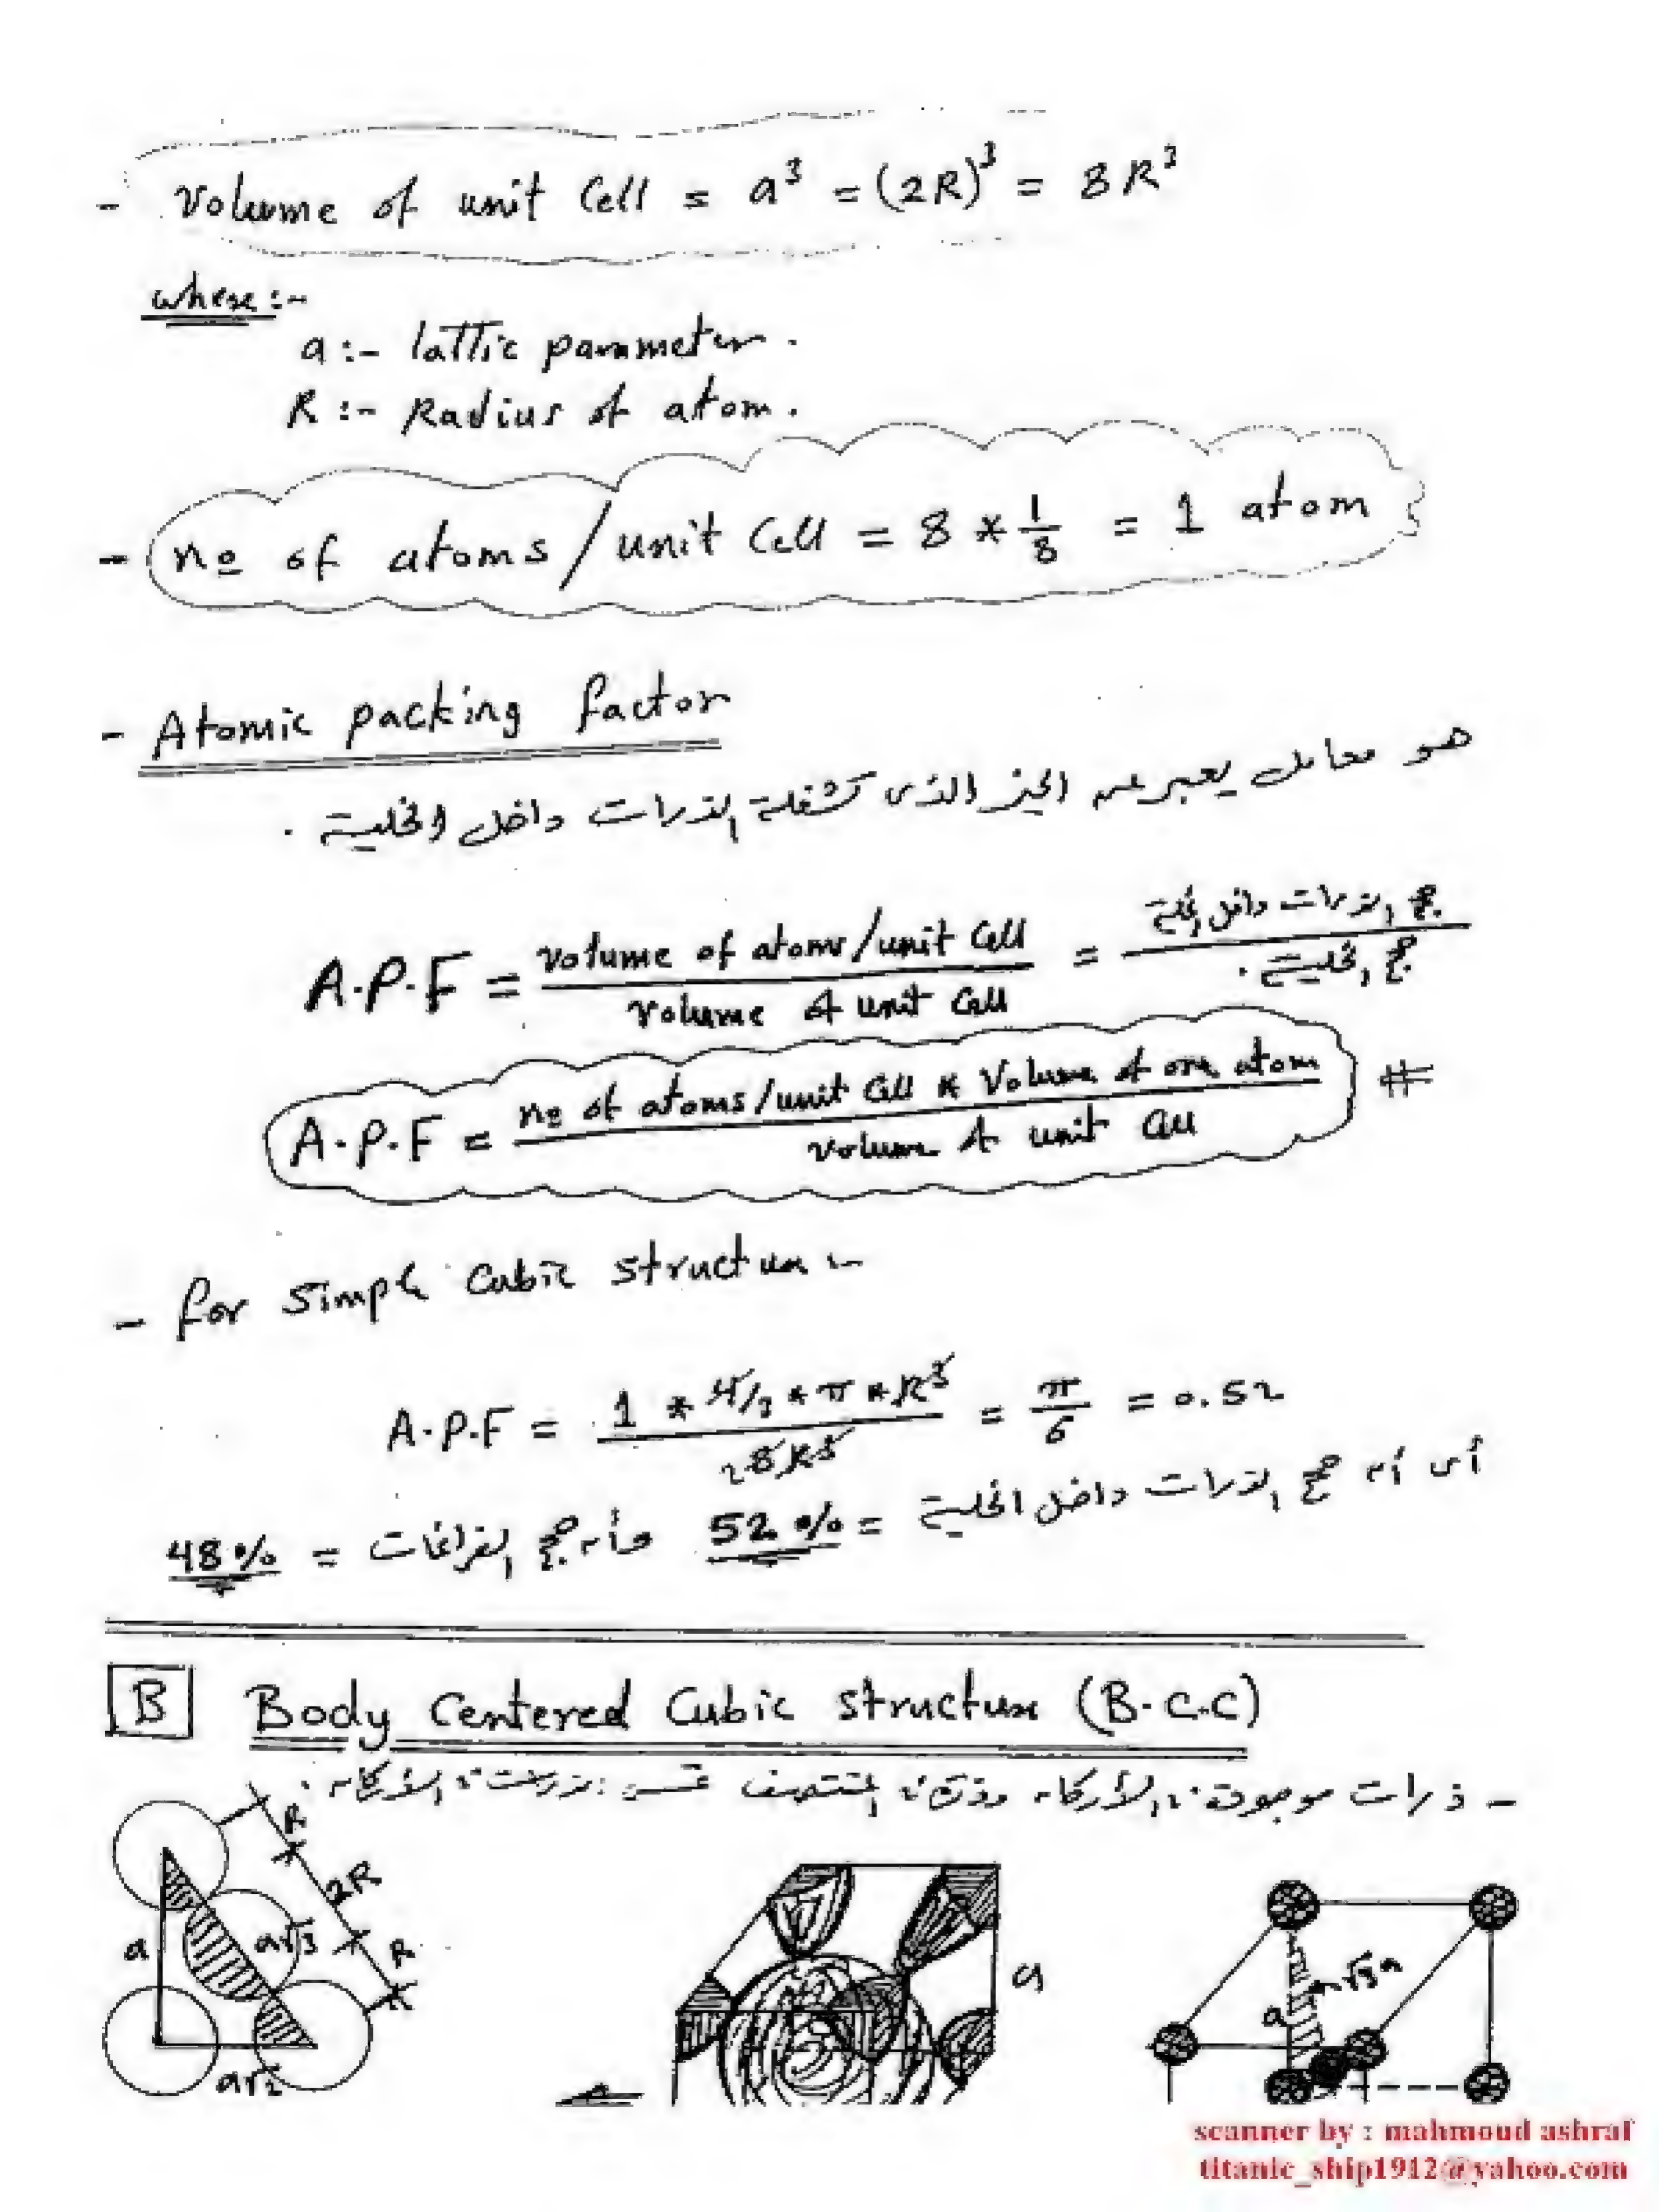 - Volume of unit Cell = a³ = (2R)³ = 8R³
where :-
a :- lattic parameter.
R :- Radius of atom.
- nº of atoms / unit Cell = 8 * 1/8 = 1 atom
- Atomic packing factor
هو معامل يعبر عن الحيز الذى تشغلة الذرات داخل الخلية .
A.P.F = volume of atoms/unit Cell / volume of unit Cell = حجم الذرات داخل الخلية / حجم الخلية .
A.P.F = nº of atoms/unit Cell * Volume of one atom / volume of unit Cell #
- for simple Cubic structure :-
A.P.F = 1 * 4/3 * π * R³ / 2 8R³ = π/6 = 0.52
أى أن حجم الذرات داخل الخلية = 52% وأن حجم الفراغات = 48%
B Body Centered Cubic structure (B.C.C)
- ذرات موجودة فى الأركان وذرة فى المنتصف تمس ذرات الأركان .
R
2R
R
a
a√3
a√2
a
√3a
a
scanner by : mahmoud ashraf
titanic_ship1912@yahoo.com